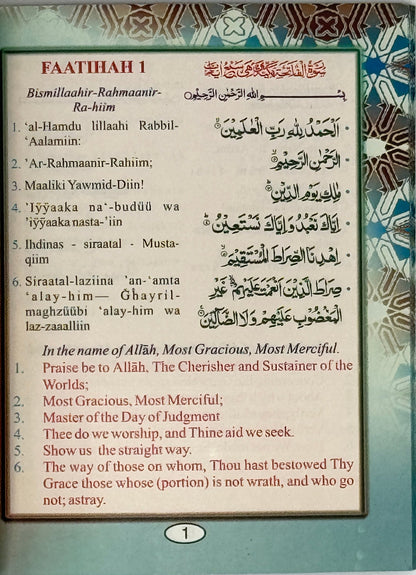 FAATIHAH 1
سُوْرَةُ الْفَاتِحَةِ مَكِّيَّةٌ وَهِيَ سَبْعُ اٰيَاتٍ
Bismillaahir-Rahmaanir-
Ra-hiim
بِسْمِ اللهِ الرَّحْمٰنِ الرَّحِيْمِ
1. ‘al-Hamdu lillaahi Rabbil-
‘Aalamiin:
اَلْحَمْدُ لِلّٰهِ رَبِّ الْعٰلَمِيْنَ ۝
2. ’Ar-Rahmaanir-Rahiim;
الرَّحْمٰنِ الرَّحِيْمِ ۝
3. Maaliki Yawmid-Diin!
مٰلِكِ يَوْمِ الدِّيْنِ ۝
4. ‘Iÿÿaaka na‘-budüü wa
‘iÿÿaaka nasta-’iin
اِيَّاكَ نَعْبُدُ وَاِيَّاكَ نَسْتَعِيْنُ ۝
5. Ihdinas - siraatal - Musta-
qiim
اِهْدِنَا الصِّرَاطَ الْمُسْتَقِيْمَ ۝
6. Siraatal-laziina ’an-‘amta
‘alay-him— Ğhayril-
maghzüübi ‘alay-him wa
laz-zaaalliin
صِرَاطَ الَّذِيْنَ اَنْعَمْتَ عَلَيْهِمْ غَيْرِ
الْمَغْضُوْبِ عَلَيْهِمْ وَلَا الضَّآلِّيْنَ ۝
In the name of Allāh, Most Gracious, Most Merciful.
1. Praise be to Allāh, The Cherisher and Sustainer of the
Worlds;
2. Most Gracious, Most Merciful;
3. Master of the Day of Judgment
4. Thee do we worship, and Thine aid we seek.
5. Show us the straight way.
6. The way of those on whom, Thou hast bestowed Thy
Grace those whose (portion) is not wrath, and who go
not; astray.
1